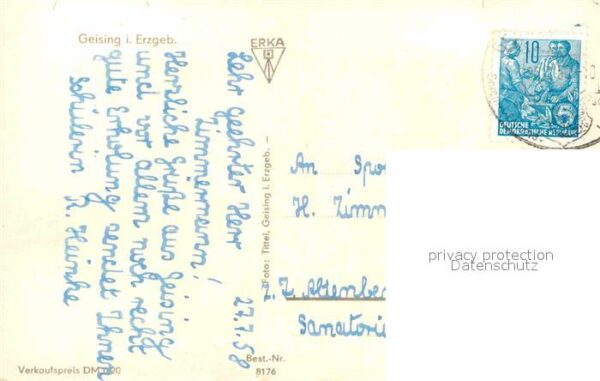 Geising i. Erzgeb.
ERKA
27.7.58
Sehr geehrter Herr
Zimmermann!
Herzliche Grüße aus Geising
und vor allem noch recht
gute Erholung sendet Ihnen
Schülerin R. Heinke
Foto: Tittel, Geising i. Erzgeb. –
Verkaufspreis DM 0,20
Best.-Nr.
8176
10
5
DEUTSCHE
DEMOKRATISCHE REPUBLIK
An Spo
H. Zimm
z. Z. Altenbe
Sanatori
privacy protection
Datenschutz